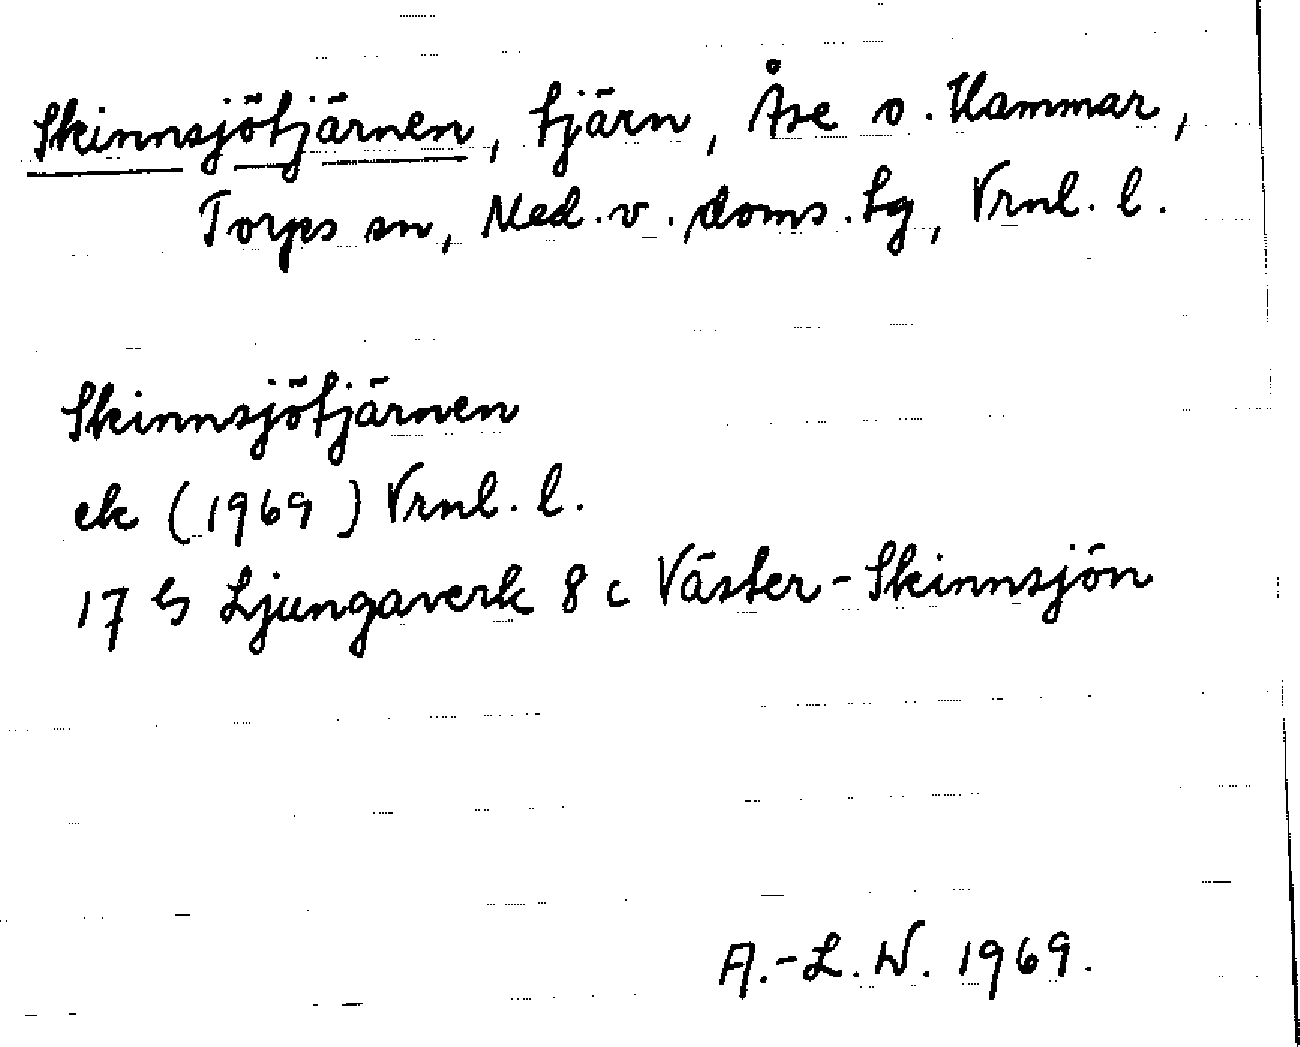 Skinnsjötjärnen, tjärn, Åse o. Hammar,
Torps sn, Med. v. doms. tg, Vrnl. l.
Skinnsjötjärnen
ek (1969) Vrnl. l.
17 G Ljungaverk 8 c Väster-Skinnsjön
A.-L. W. 1969.